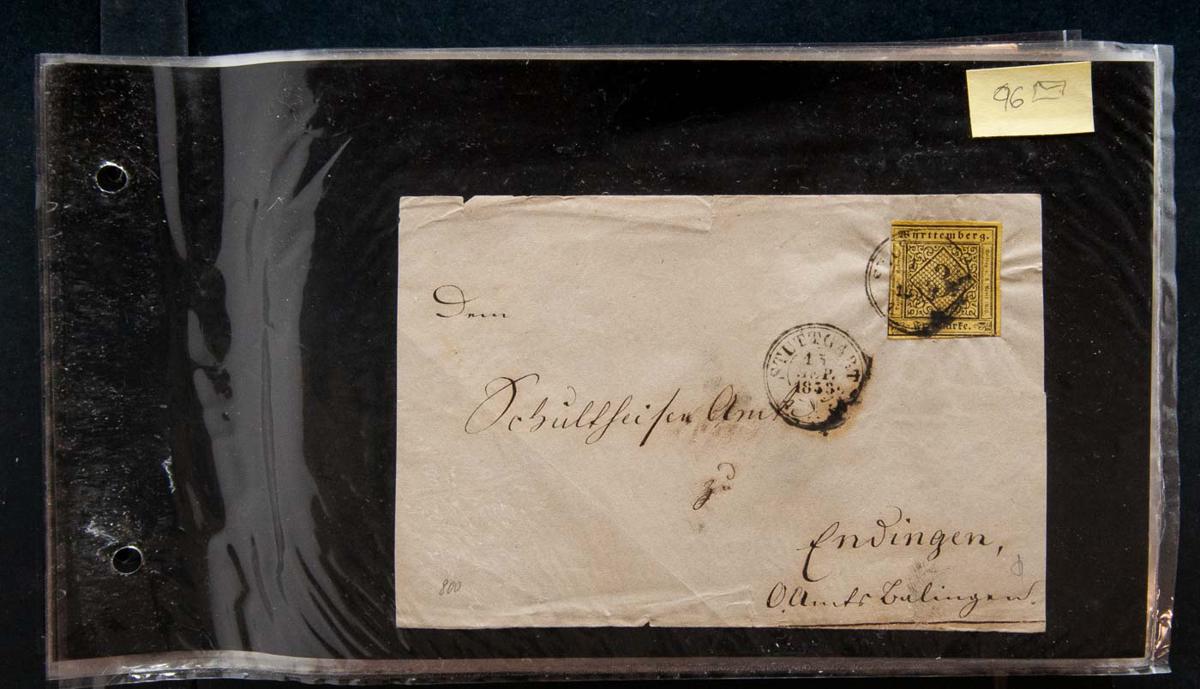 96
Württemberg.
3
Freimarke.
STUTTGART
15
SEP.
1853.
Dem
Schultheisen Amt
zu
Endingen,
O. Amts Balingen.
800